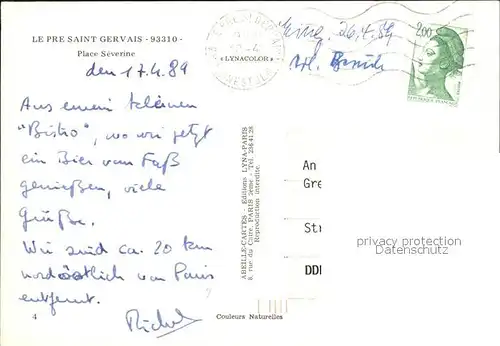 LE PRE SAINT GERVAIS - 93310 -
Place Séverine
den 17.4.89
Aus einem kleinen
"Bistro", wo wir jetzt
ein Bier vom Faß
genießen, viele
Grüße.
Wir sind ca. 20 km
nordöstlich von Paris
entfernt.
4
«LYNACOLOR»
26.4.89
2,00
REPUBLIQUE FRANÇAISE
ABEILLE-CARTES - Editions LYNA-PARIS
8, rue du Caire, PARIS 2ème - Tél. 236.41.28
Reproduction interdite.
An
Gre
Str
DDI
privacy protection
Datenschutz
Couleurs Naturelles